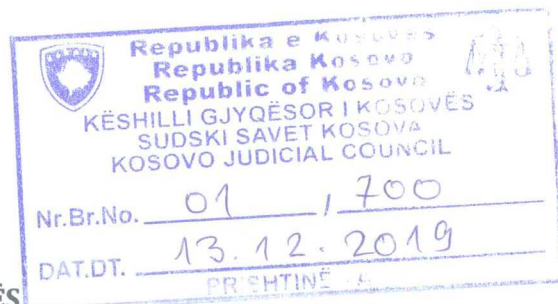 Republika e Kosovës
Republika Kosovo
Republic of Kosovo
KËSHILLI GJYQËSOR I KOSOVËS
SUDSKI SAVET KOSOVA
KOSOVO JUDICIAL COUNCIL
Nr.Br.No. 01 / 700
DAT.DT. 13.12.2019
PRISHTINË
ËS